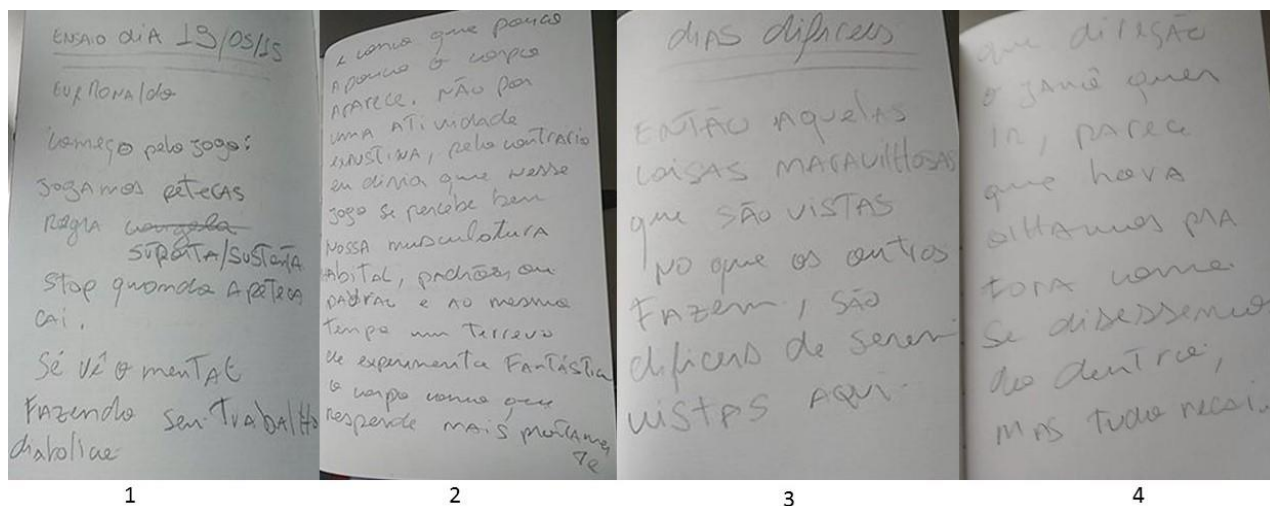 ENSAIO DIA 19/05/15
EU E RONALDO
Começo pelo jogo:
JOGAMOS PETECAS
REGRA congela
SUPORTA/SUSTENTA
Stop quando A peteca
CAI.
Sé vê o mental
FAZENDO seu TrabalHo
diabolico
e como que pouco
A pouco o corpo
APARECE. NÃO por
uma ATIVIDADE
EXAUSTIVA, pelo contrario
eu diria que nesse
jogo se percebe bem
NOSSA musculatura
, padrões, ou
e AO mesmo
tempo um Terreno
de experimento FANTÁSTICO
o corpo como que
responde MAIS prontamen
Te
DIAS dificeis
ENTÃO AQUELAS
COISAS MARAVILHOSAS
que SÃO VISTAS
NO que os outros
FAZEM, SÃO
dificeis de serem
VISTAS AQUI.
que direção
o quer
IR, PARECE
que hora
olHAmos PRA
FORA como
se dissessemos
do dentro,
MAS Tudo recai.
1
2
3
4